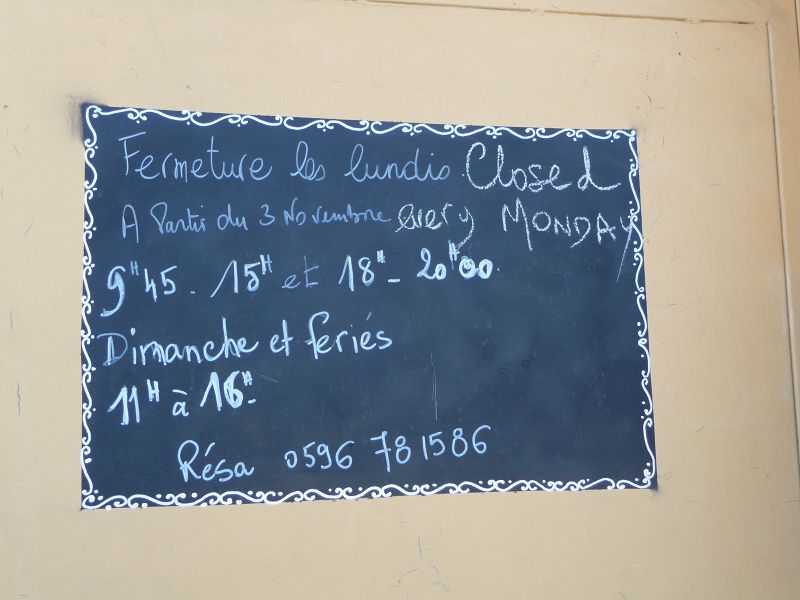 Fermeture les lundis Closed
A Partir du 3 Novembre every MONDAY
9H45 - 15H et 18H - 20H00.
Dimanche et feriés
11H à 16H-
Résa 0596 781586